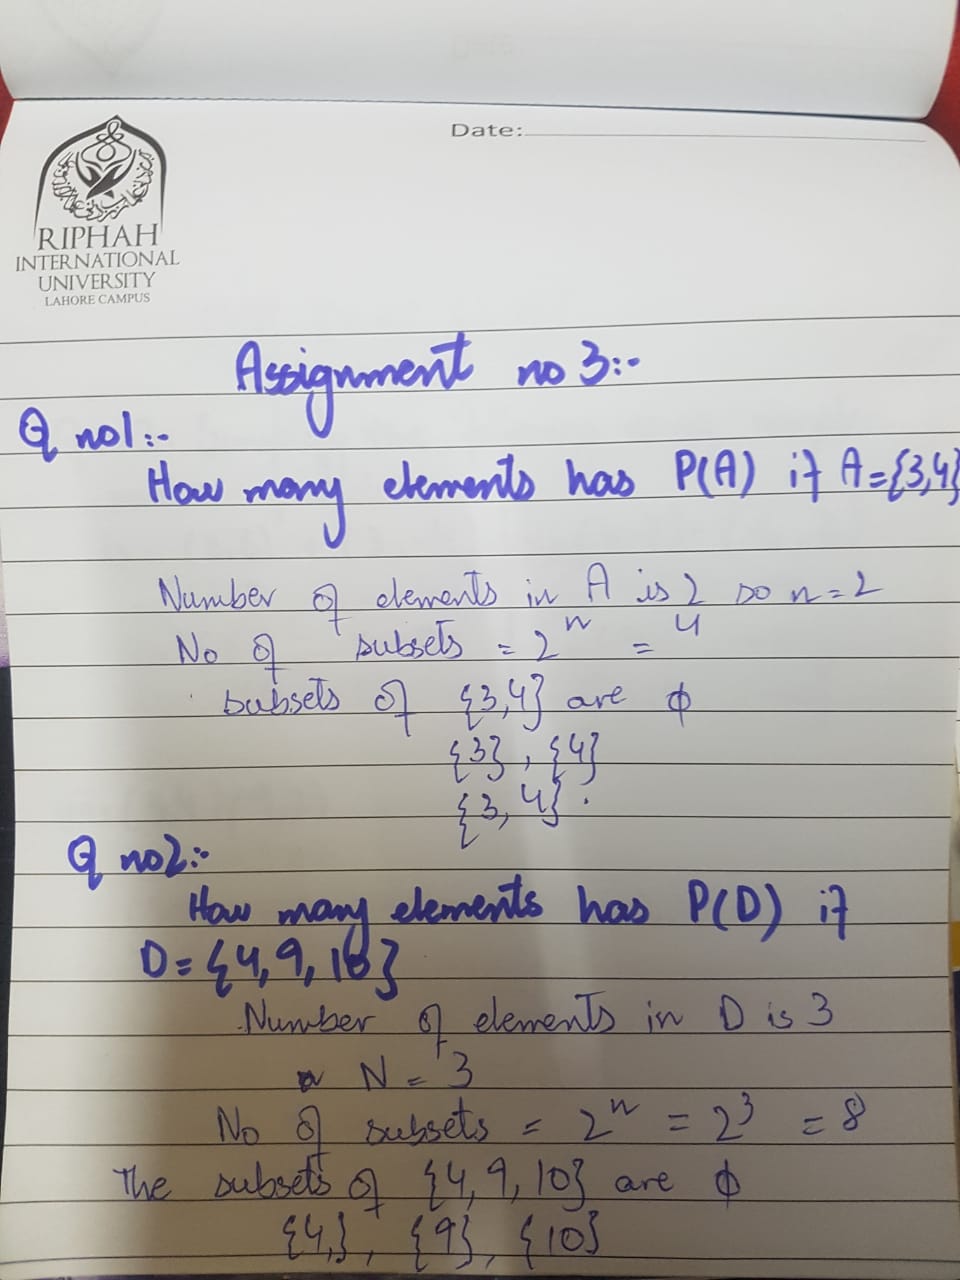 Date:
RIPHAH
INTERNATIONAL
UNIVERSITY
LAHORE CAMPUS
Assignment no 3:-
Q no1:-
How many elements has P(A) if A={3,4}
Number of elements in A is 2 so n=2
No of subsets = 2ⁿ = 4
subsets of {3,4} are ϕ
{3}, {4}
{3,4}.
Q no2:-
How many elements has P(D) if
D={4,9,10}
Number of elements in D is 3
N = 3
No of subsets = 2ⁿ = 2³ = 8
The subsets of {4,9,10} are ϕ
{4,}, {9}, {10}